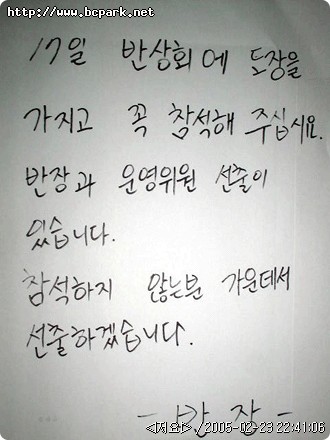 http://www.bcpark.net
17일 반상회에 도장을
가지고 꼭 참석해 주십시요.
반장과 운영위원 선출이
있습니다.
참석하지 않는분 가운데서
선출하겠습니다.
- 반 장 -
2005-02-23 22:41:06